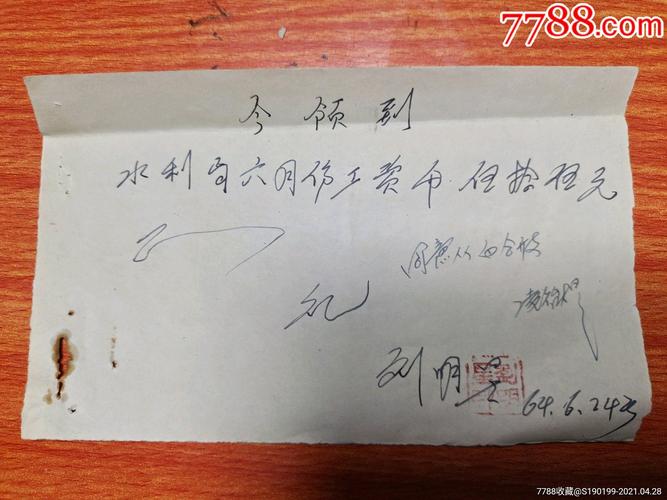 7788.com
今领到
水利局六月份工资币伍拾伍元
正
同意从
刘明星
64.6.24号
7788收藏@S190199-2021.04.28